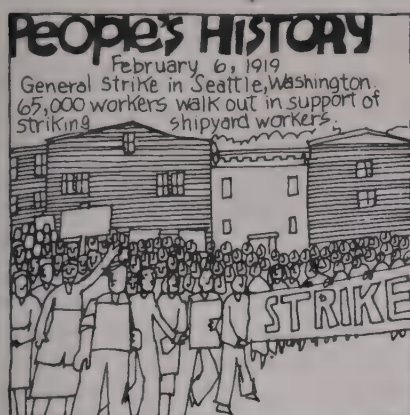 PEOPLE'S HISTORY
February 6, 1919
General Strike in Seattle, Washington.
65,000 workers walk out in support of
striking shipyard workers.
STRIKE